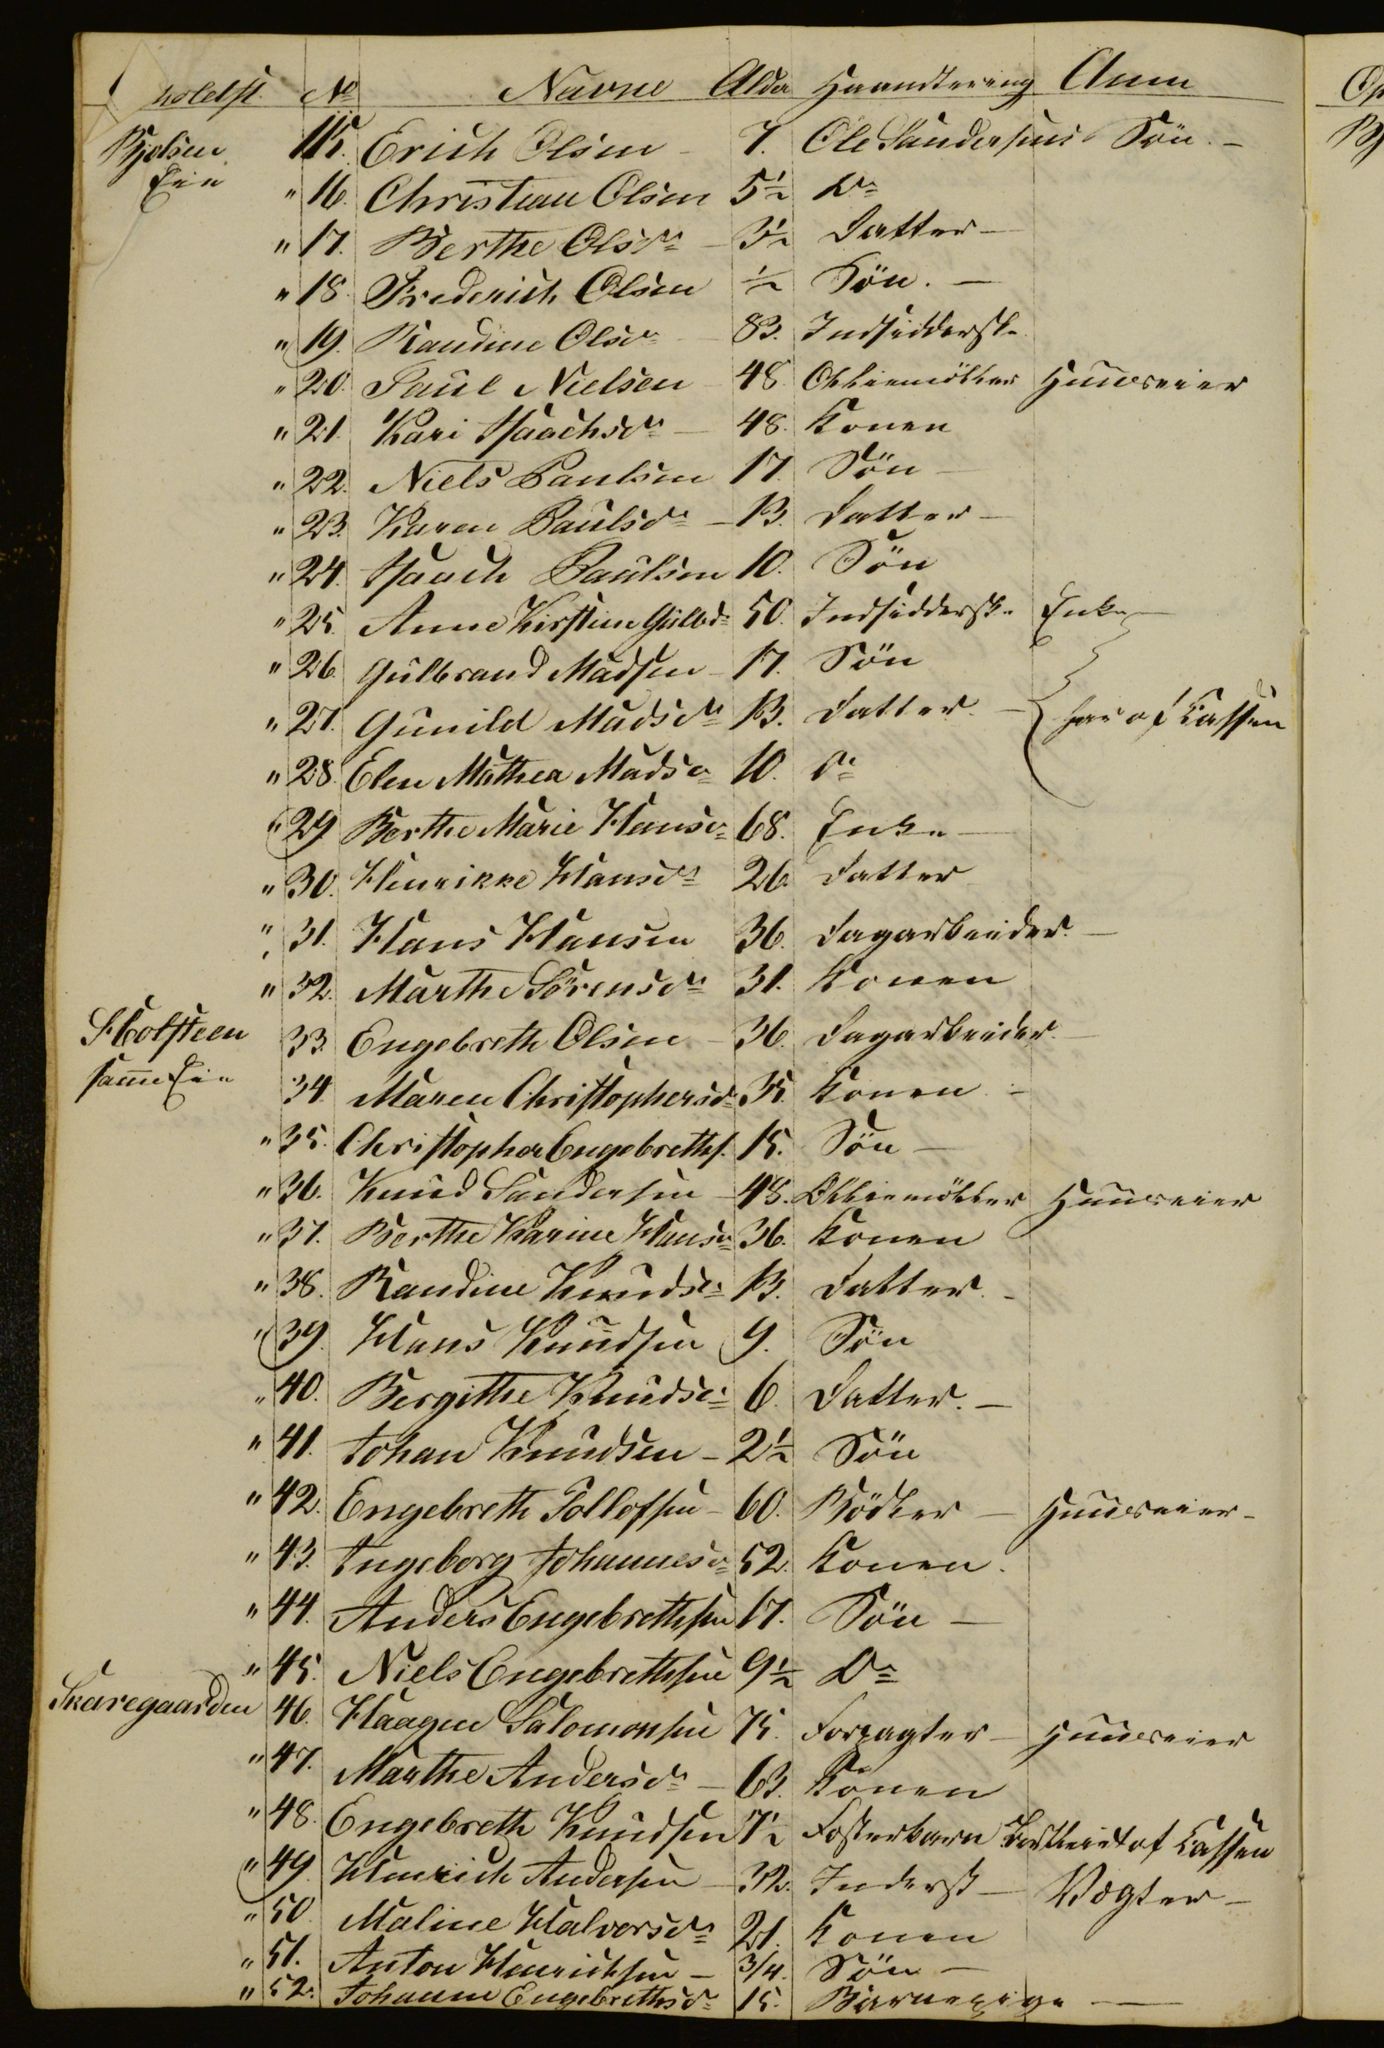 holdst. No Navne Alder Haandtering Anm
Bjølsen 15. Erich Olsen - 7. Ole Sandersens Søn. -
Eie " 16. Christian Olsen 5½ Do
" 17. Berthe Olsdr - 3½ Datter -
" 18. Frederich Olsen ½ Søn. -
" 19. Randine Olsdr - 83. Indsidderske
" 20. Paul Nielsen - 48. Olliemöller Huuseier
" 21. Kari Isaachsdr - 48. Konen
" 22. Niels Paulsen 17. Søn -
" 23. Karen Paulsdr - 13. Datter -
" 24. Isaach Paulsen 10. Søn
" 25. Anne Kirstine Gulbdr 50. Indsidderske Enke -
" 26. Gulbrand Madsen - 17. Søn
" 27. Gunild Madsdr 13. Datter - har af Kassen
" 28. Elen Mathea Madsdr 10. Do
" 29. Berthe Marie Hansdr 68. Enke -
" 30. Henrikke Hansdr 26. Datter
" 31. Hans Hansen 36. Dagarbeider. -
" 32. Marthe Sörensdr 31. Konen
33. Engebreth Olsen - 36. Dagarbeider. -
samme Eie 34. Maren Christophersdr 35. Konen -
" 35. Christopher Engebreths. 15. Søn -
" 36. Knud Sandersen - 48. Olliemöller Huuseier
" 37. Berthe Karine Hansdr 36. Konen
" 38. Randine Knudsdr 13. Datter. -
" 39. Hans Knudsen 9. Søn
" 40. Bergithe Knudsdr 6. Datter. -
" 41. Johan Knudsen - 2½ Søn
" 42. Engebreth Tollefsen - 60. Bødker - Huuseier -
" 43. Ingeborg Johannesdr 52. Konen.
" 44. Anders Engebrethsen 17. Søn -
" 45. Niels Engebrethsen 9½ Do
Skaregaarden 46. Haagen Salomonsen 75. Forpagter - Huuseier
" 47. Marthe Andersdr - 63. Konen
" 48. Engebreth Knudsen 7½ Fosterbarn Bortleiet af Kassen
" 49. Henrich Andersen - 32. Inderst - Vægter -
" 50. Maline Halvorsdr 21. Konen
" 51. Anton Henrichsen - 3/4. Søn -
" 52. Johanne Engebrethsdr 15. Barnepige -